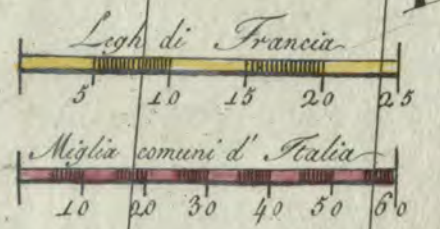 Legh di Francia
5 10 15 20 25
Miglia comuni d' Italia
10 20 30 40 50 60